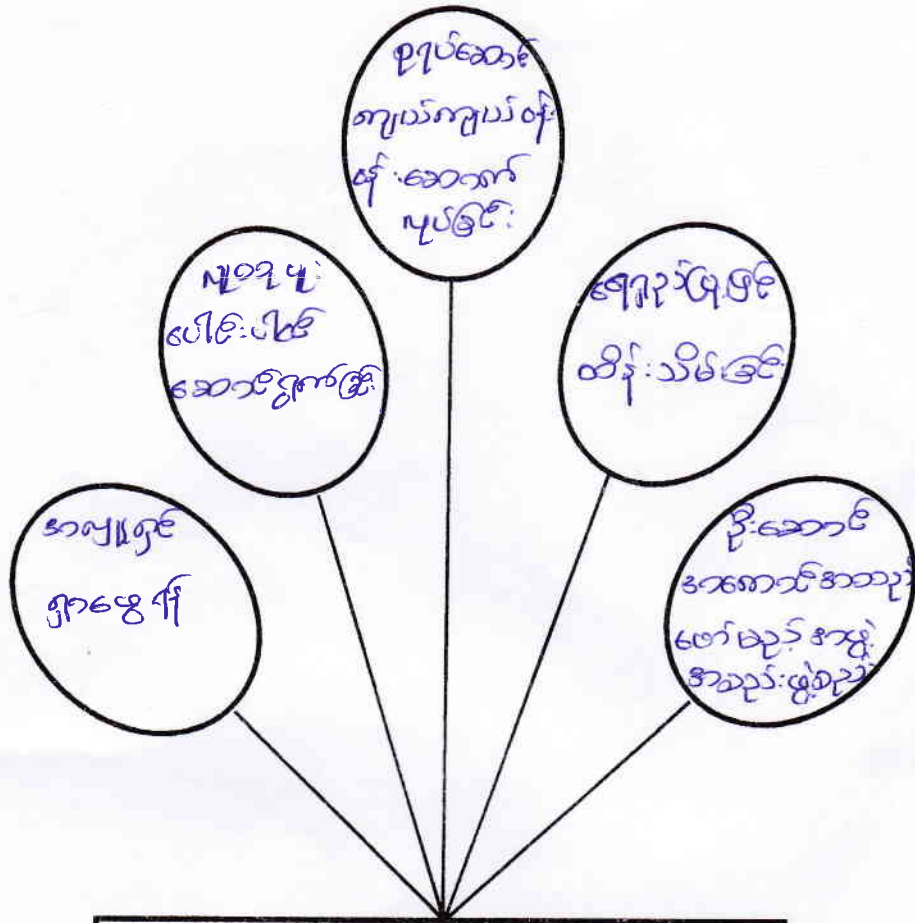 စုရပ်ဆောင်
ကျယ်ကျယ်ဝန်း
ဝန်းဆောက်
လုပ်ခြင်း
လူထုမှ
ပေါင်းပါင်း
ဆောင်ရွက်ခြင်း
ရေရှည်
ထိန်းသိမ်းခြင်း
အလှူရှင်
ရှာဖွေရန်
ဦးဆောင်
အကောင်အထည်
ဖော်မည့်အဖွဲ့
အစည်းဖွဲ့စည်း